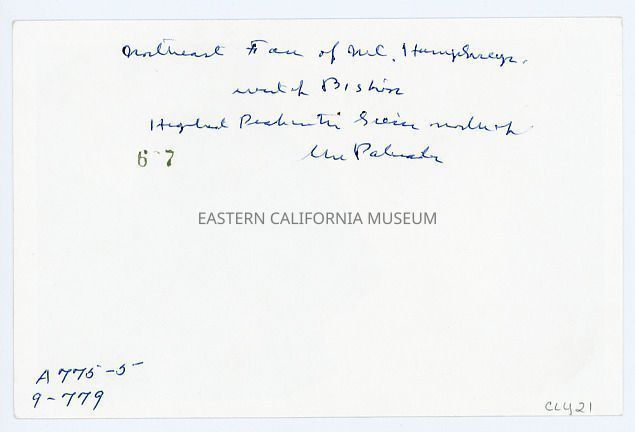 Northeast Face of Mt. Humphreys.
west of Bishop
Highest Peak in the Sierra north of
the Palisade
6 7
EASTERN CALIFORNIA MUSEUM
A 775-5
9-779
CLY21